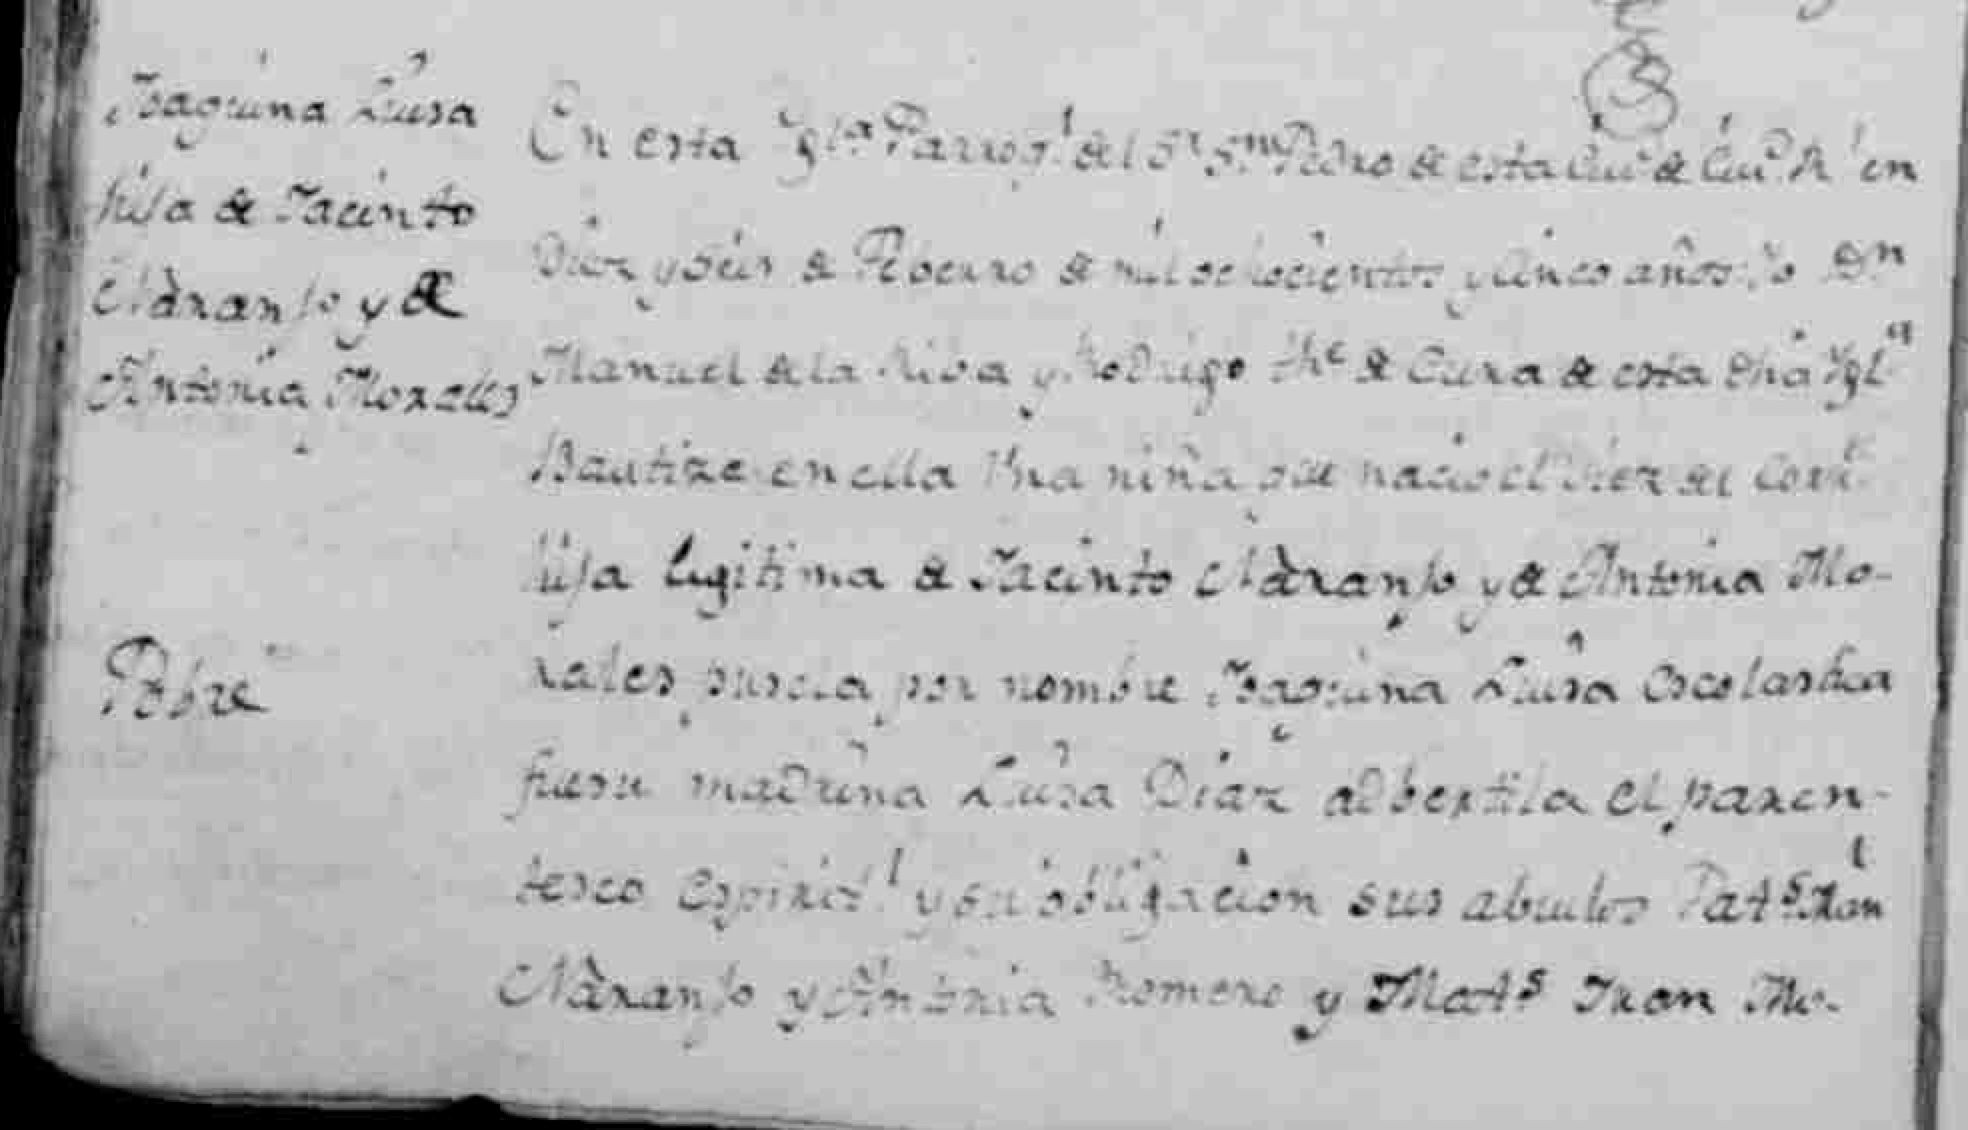 Joaquina Luisa
hija de Jacinto
Naranjo y de
Antonia Morales
Pobre
En esta Ygla. Parroql. del Sr. Sn. Pedro de esta Ciud. de Ciud. Rl. en
Diez y seis de Febrero de mil ochocientos y cinco años: Yo Dn
Manuel de la Riva y Rodrigo The. de Cura de esta dha Ygla
Bautize en ella Una niña que nacio el Diez del Corrte.
hija legitima de Jacinto Naranjo y de Antonia Mo-
rales pusela por nombre Joaquina Luisa Escolastica
fuesu madrina Luisa Diaz adbertila el paren-
tesco Espiritl. y su obligacion sus abuelos Pats. Juan
Naranjo y Antonia Romero y Mats Juan Mo-